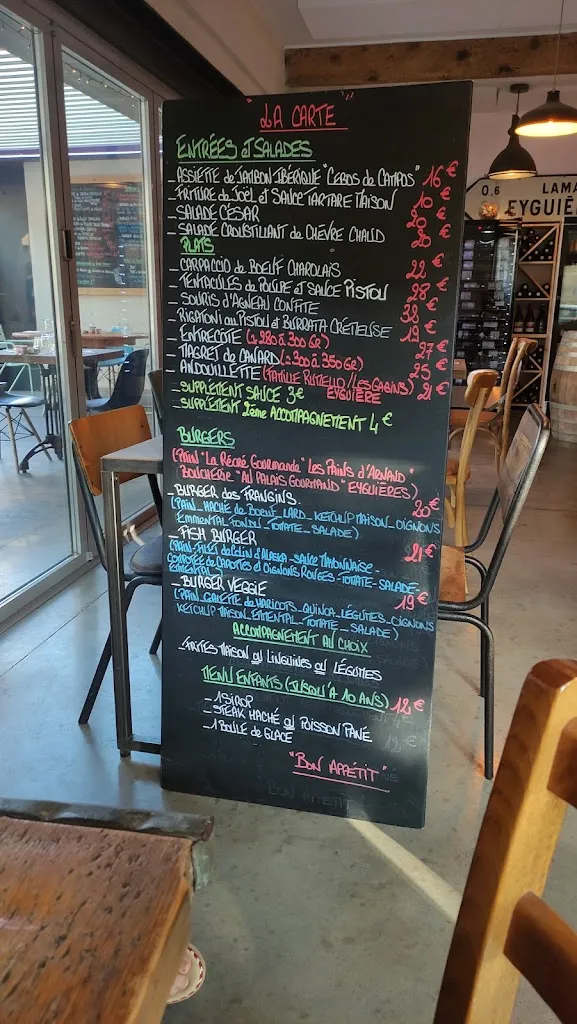 "LA CARTE"
ENTRÉES et SALADES
_ ASSIETTE de JAMBON IBÉRIQUE "CEBOS de CAMPOS" 16€
_ FRITURE de JOËL et SAUCE TARTARE MAISON 10€
_ SALADE CÉSAR 20€
_ SALADE CROUSTILLANT de CHÈVRE CHAUD 20€
PLATS
_ CARPACCIO de BOEUF CHAROLAIS 22€
_ TENTACULES de POULPE et SAUCE PISTOU 28€
_ SOURIS D'AGNEAU CONFITE 38€
_ RIGATONI au PISTOU et BURRATA CRÉMEUSE 19€
_ ENTRECÔTE (≃280 à 300 GR) 27€
_ MAGRET de CANARD (≃300 à 350GR) 25€
_ ANDOUILLETTE (FAMILLE RUTIELLO/LES GAGINS) EYGUIÈRE 21€
_ SUPPLÉMENT SAUCE 3€
_ SUPPLÉMENT 2ème ACCOMPAGNEMENT 4€
BURGERS
(PAIN "LA RÉCRÉ GOURMANDE" "LES PAINS d'ARNAUD"
BOUCHERIE "AU PALAIS GOURMAND" EYGUIÈRES)
_ BURGER des FRANGINS 20€
(PAIN_HACHÉ de BOEUF_LARD_KETCHUP MAISON_OIGNONS
EMMENTAL FONDU_TOMATE_SALADE)
_ FISH BURGER 21€
(PAIN-FILET de COLIN d'ALASKA-SAUCE MAYONNAISE-
COMPOTÉE de CAROTTES et OIGNONS ROUGES-TOMATE-SALADE-
EMMENTAL)
_ BURGER VEGGIE 19€
(PAIN_GALETTE de HARICOTS_QUINOA_LÉGUMES_OIGNONS
KETCHUP MAISON_EMMENTAL_TOMATE_SALADE)
ACCOMPAGNEMENT AU CHOIX
_ FRITES MAISON ou LINGUINES ou LÉGUMES
MENU ENFANTS (JUSQU'À 10 ANS) 12€
_ 1 SIROP
_ STEAK HACHÉ ou POISSON PANÉ
_ 1 BOULE de GLACE
"BON APPÉTIT"
0.6 LAMA
EYGUIÈ